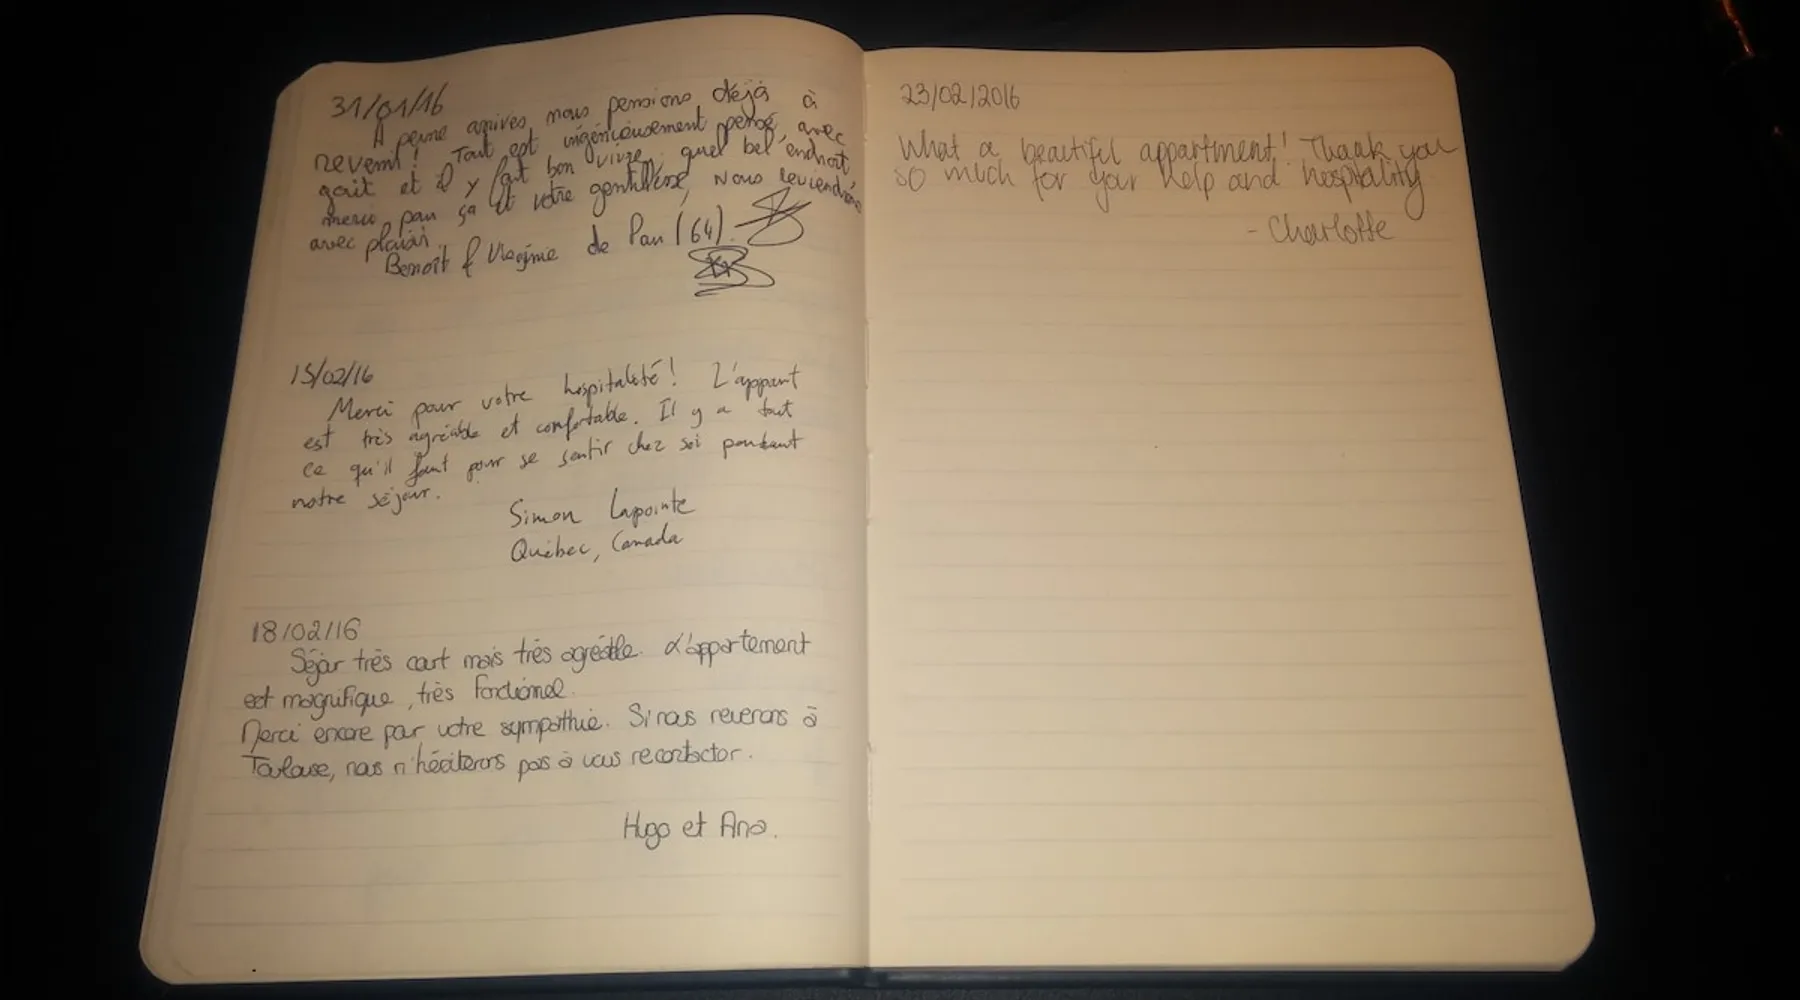 31/01/16
A peine arrivés, nous pensions déjà à
revenir ! Tout est ingénieusement pensé, avec
goût et il y fait bon vivre, quel bel endroit,
merci pour ça et votre gentillesse, Nous reviendrons
avec plaisir.
Benoît & Virginie de Pau (64).
15/02/16
Merci pour votre hospitalité! L'appart
est très agréable et confortable. Il y a tout
ce qu'il faut pour se sentir chez soi pendant
notre séjour.
Simon Lapointe
Québec, Canada
18/02/16
Séjour très court mais très agréable. L'appartement
est magnifique, très fonctionnel.
Merci encore pour votre sympathie. Si nous revenons à
Toulouse, nous n'héciterons pas à vous recontacter.
Hugo et Ana.
23/02/2016
What a beautiful appartment! Thank you
so much for your help and hospitality
- Charlotte